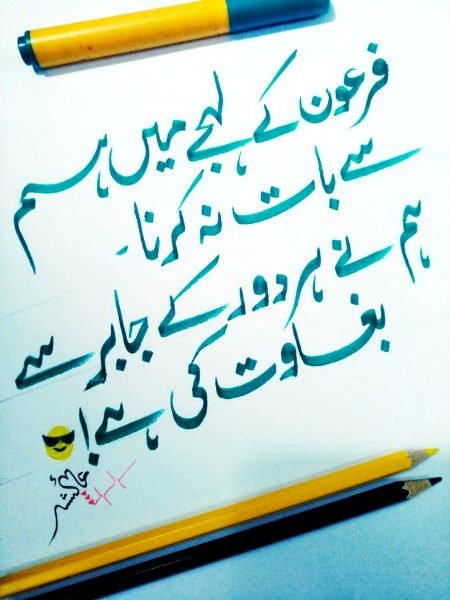 فرعون کے لہجے میں ہم
سے بات نہ کرنا۔
ہم نے ہر دور کے جابر سے
بغاوت کی ہے!
عائشہ